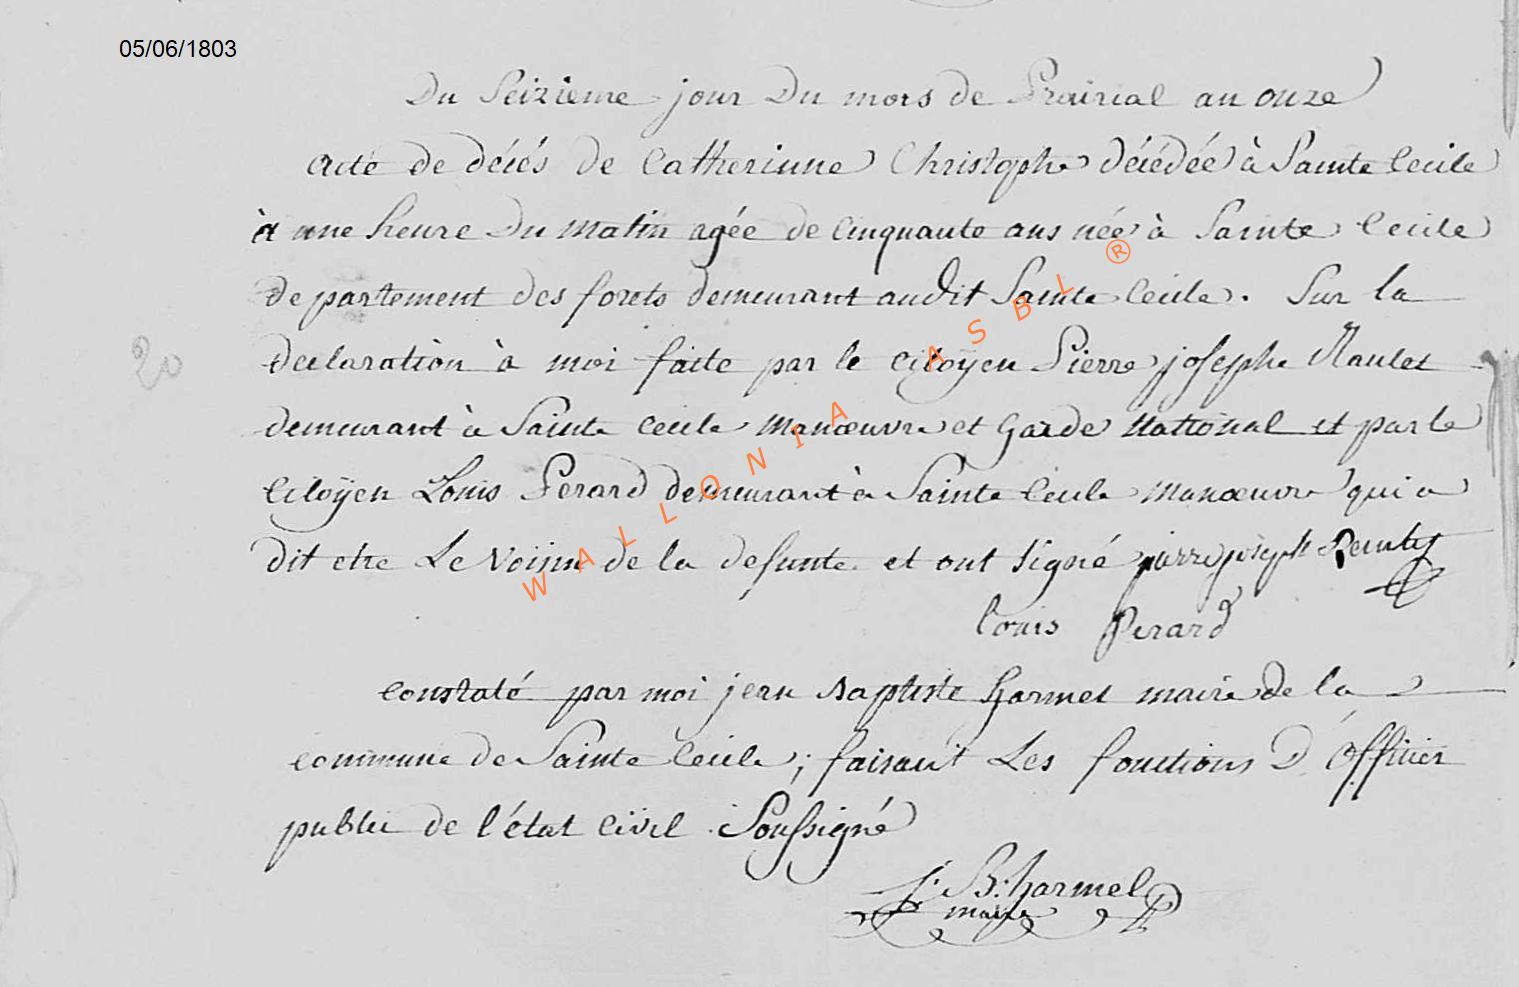 05/06/1803
Du Seizieme jour Du mois de Prairial an onze
acte de décés de Catherinne Christophe décédée à Sainte Cecile
à une heure Du matin agée de Cinquante ans née à Sainte Cecile
departement des forets demeurant audit Sainte Cecile. Sur la
declaration à moi faite par le Citoÿen Pierre josephe
20
demeurant à Sainte Cecile manœuvre et Garde National et par le
Citoÿen Louis Perard demeurant à Sainte Cecile manœuvre qui a
dit etre Le Voisin de la defunte et ont Signé pierre joseph
louis Perard
constaté par moi jean baptiste harmel maire de la
commune de Sainte Cecile ; faisant Les fonctions D'Officier
public de l'état Civil Soussigné
J. B. harmel
maire
WALLONIA ASBL ®